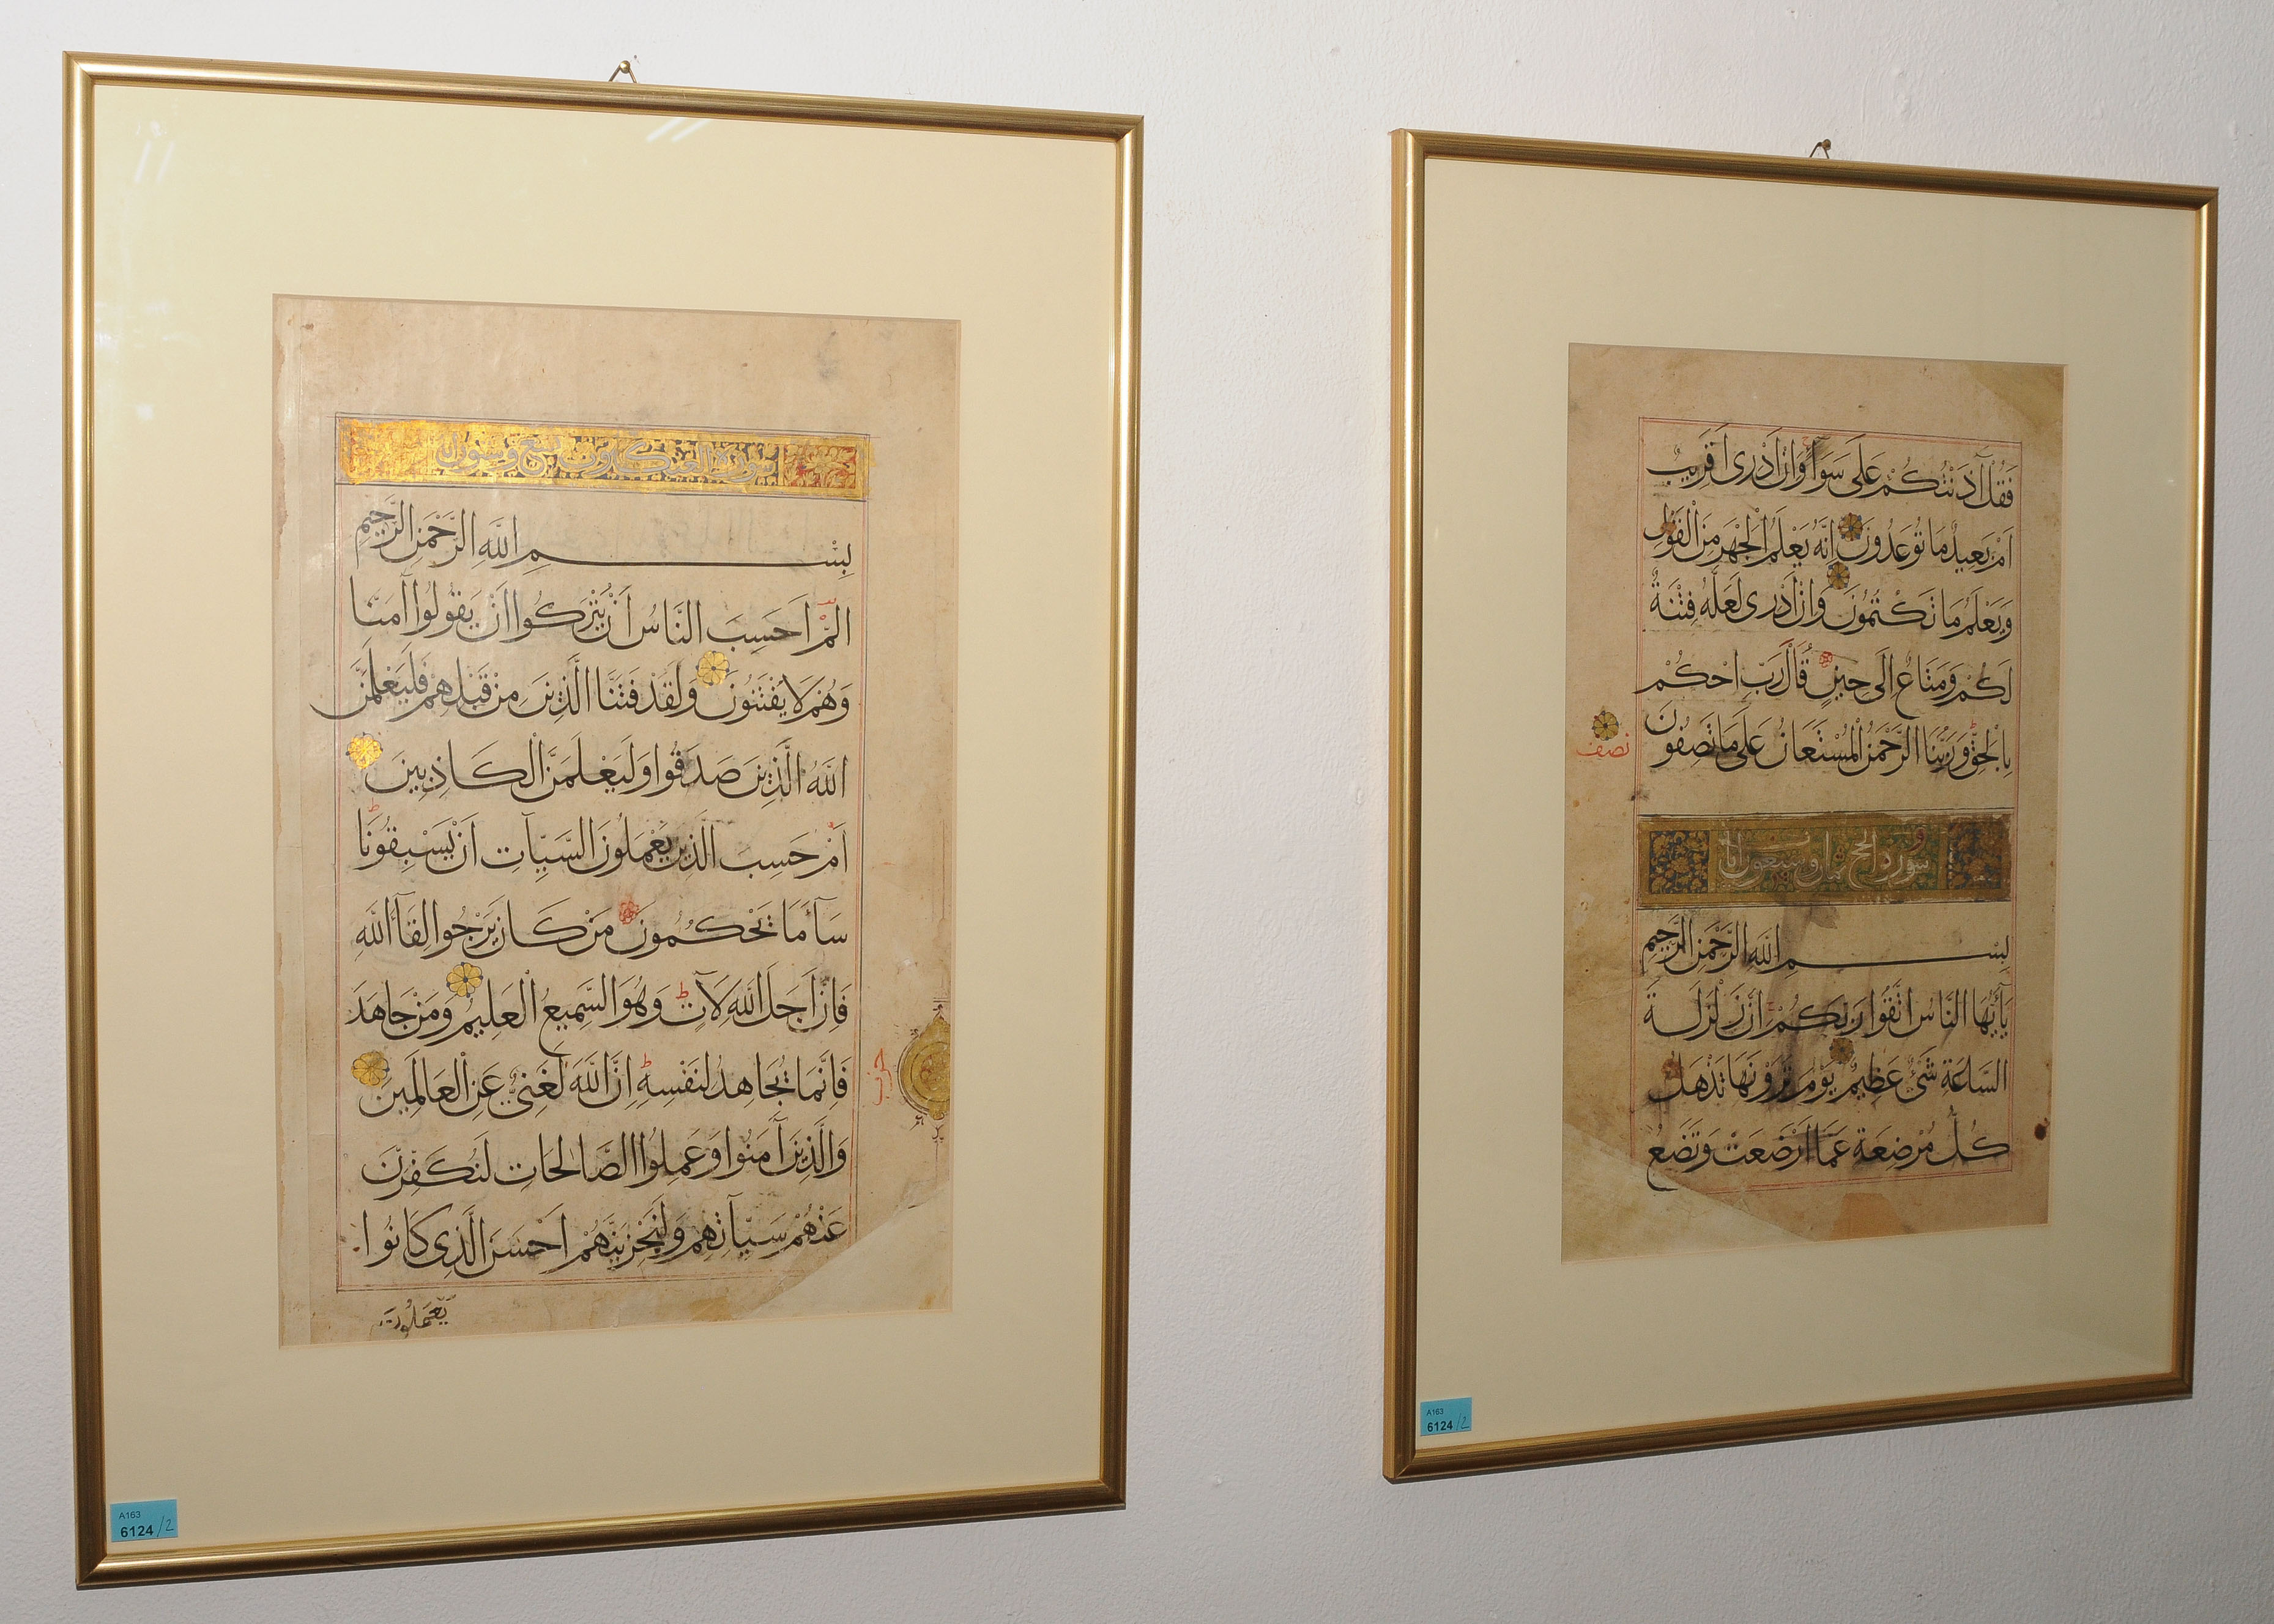 سورة العنكبوت تسع وستون
بِسْمِ اللّٰهِ الرَّحْمٰنِ الرَّحِيمِ
الم اَحَسِبَ النَّاسُ اَنْ يُتْرَكُوا اَنْ يَقُولُوا آمَنَّا
وَهُمْ لَا يُفْتَنُونَ وَلَقَدْ فَتَنَّا الَّذِينَ مِنْ قَبْلِهِمْ فَلَيَعْلَمَنَّ
اللّٰهُ الَّذِينَ صَدَقُوا وَلَيَعْلَمَنَّ الْكَاذِبِينَ
اَمْ حَسِبَ الَّذِينَ يَعْمَلُونَ السَّيِّآتِ اَنْ يَسْبِقُونَا
سَآءَ مَا يَحْكُمُونَ مَنْ كَانَ يَرْجُوا لِقَآءَ اللّٰهِ
فَاِنَّ اَجَلَ اللّٰهِ لَآتٍ وَهُوَ السَّمِيعُ الْعَلِيمُ وَمَنْ جَاهَدَ
فَاِنَّمَا يُجَاهِدُ لِنَفْسِهِ اِنَّ اللّٰهَ لَغَنِيٌّ عَنِ الْعَالَمِينَ
وَالَّذِينَ آمَنُوا وَعَمِلُوا الصَّالِحَاتِ لَنُكَفِّرَنَّ
عَنْهُمْ سَيِّآتِهِمْ وَلَنَجْزِيَنَّهُمْ اَحْسَنَ الَّذِى كَانُوا
يَعْمَلُونَ
حزب
A163
6124/2
فَقُلْ آذَنْتُكُمْ عَلَى سَوَآءٍ وَاِنْ اَدْرِى اَقَرِيبٌ
اَمْ بَعِيدٌ مَا تُوعَدُونَ اِنَّهُ يَعْلَمُ الْجَهْرَ مِنَ الْقَوْلِ
وَيَعْلَمُ مَا تَكْتُمُونَ وَاِنْ اَدْرِى لَعَلَّهُ فِتْنَةٌ
لَكُمْ وَمَتَاعٌ اِلَى حِينٍ قَالَ رَبِّ احْكُمْ
بِالْحَقِّ وَرَبُّنَا الرَّحْمٰنُ الْمُسْتَعَانُ عَلَى مَا تَصِفُونَ
نصف
سورة الحج ثمان وسبعون آيات
بِسْمِ اللّٰهِ الرَّحْمٰنِ الرَّحِيمِ
يَآ اَيُّهَا النَّاسُ اتَّقُوا رَبَّكُمْ اِنَّ زَلْزَلَةَ
السَّاعَةِ شَىْءٌ عَظِيمٌ يَوْمَ تَرَوْنَهَا تَذْهَلُ
كُلُّ مُرْضِعَةٍ عَمَّا اَرْضَعَتْ وَتَضَعُ
A163
6124/2